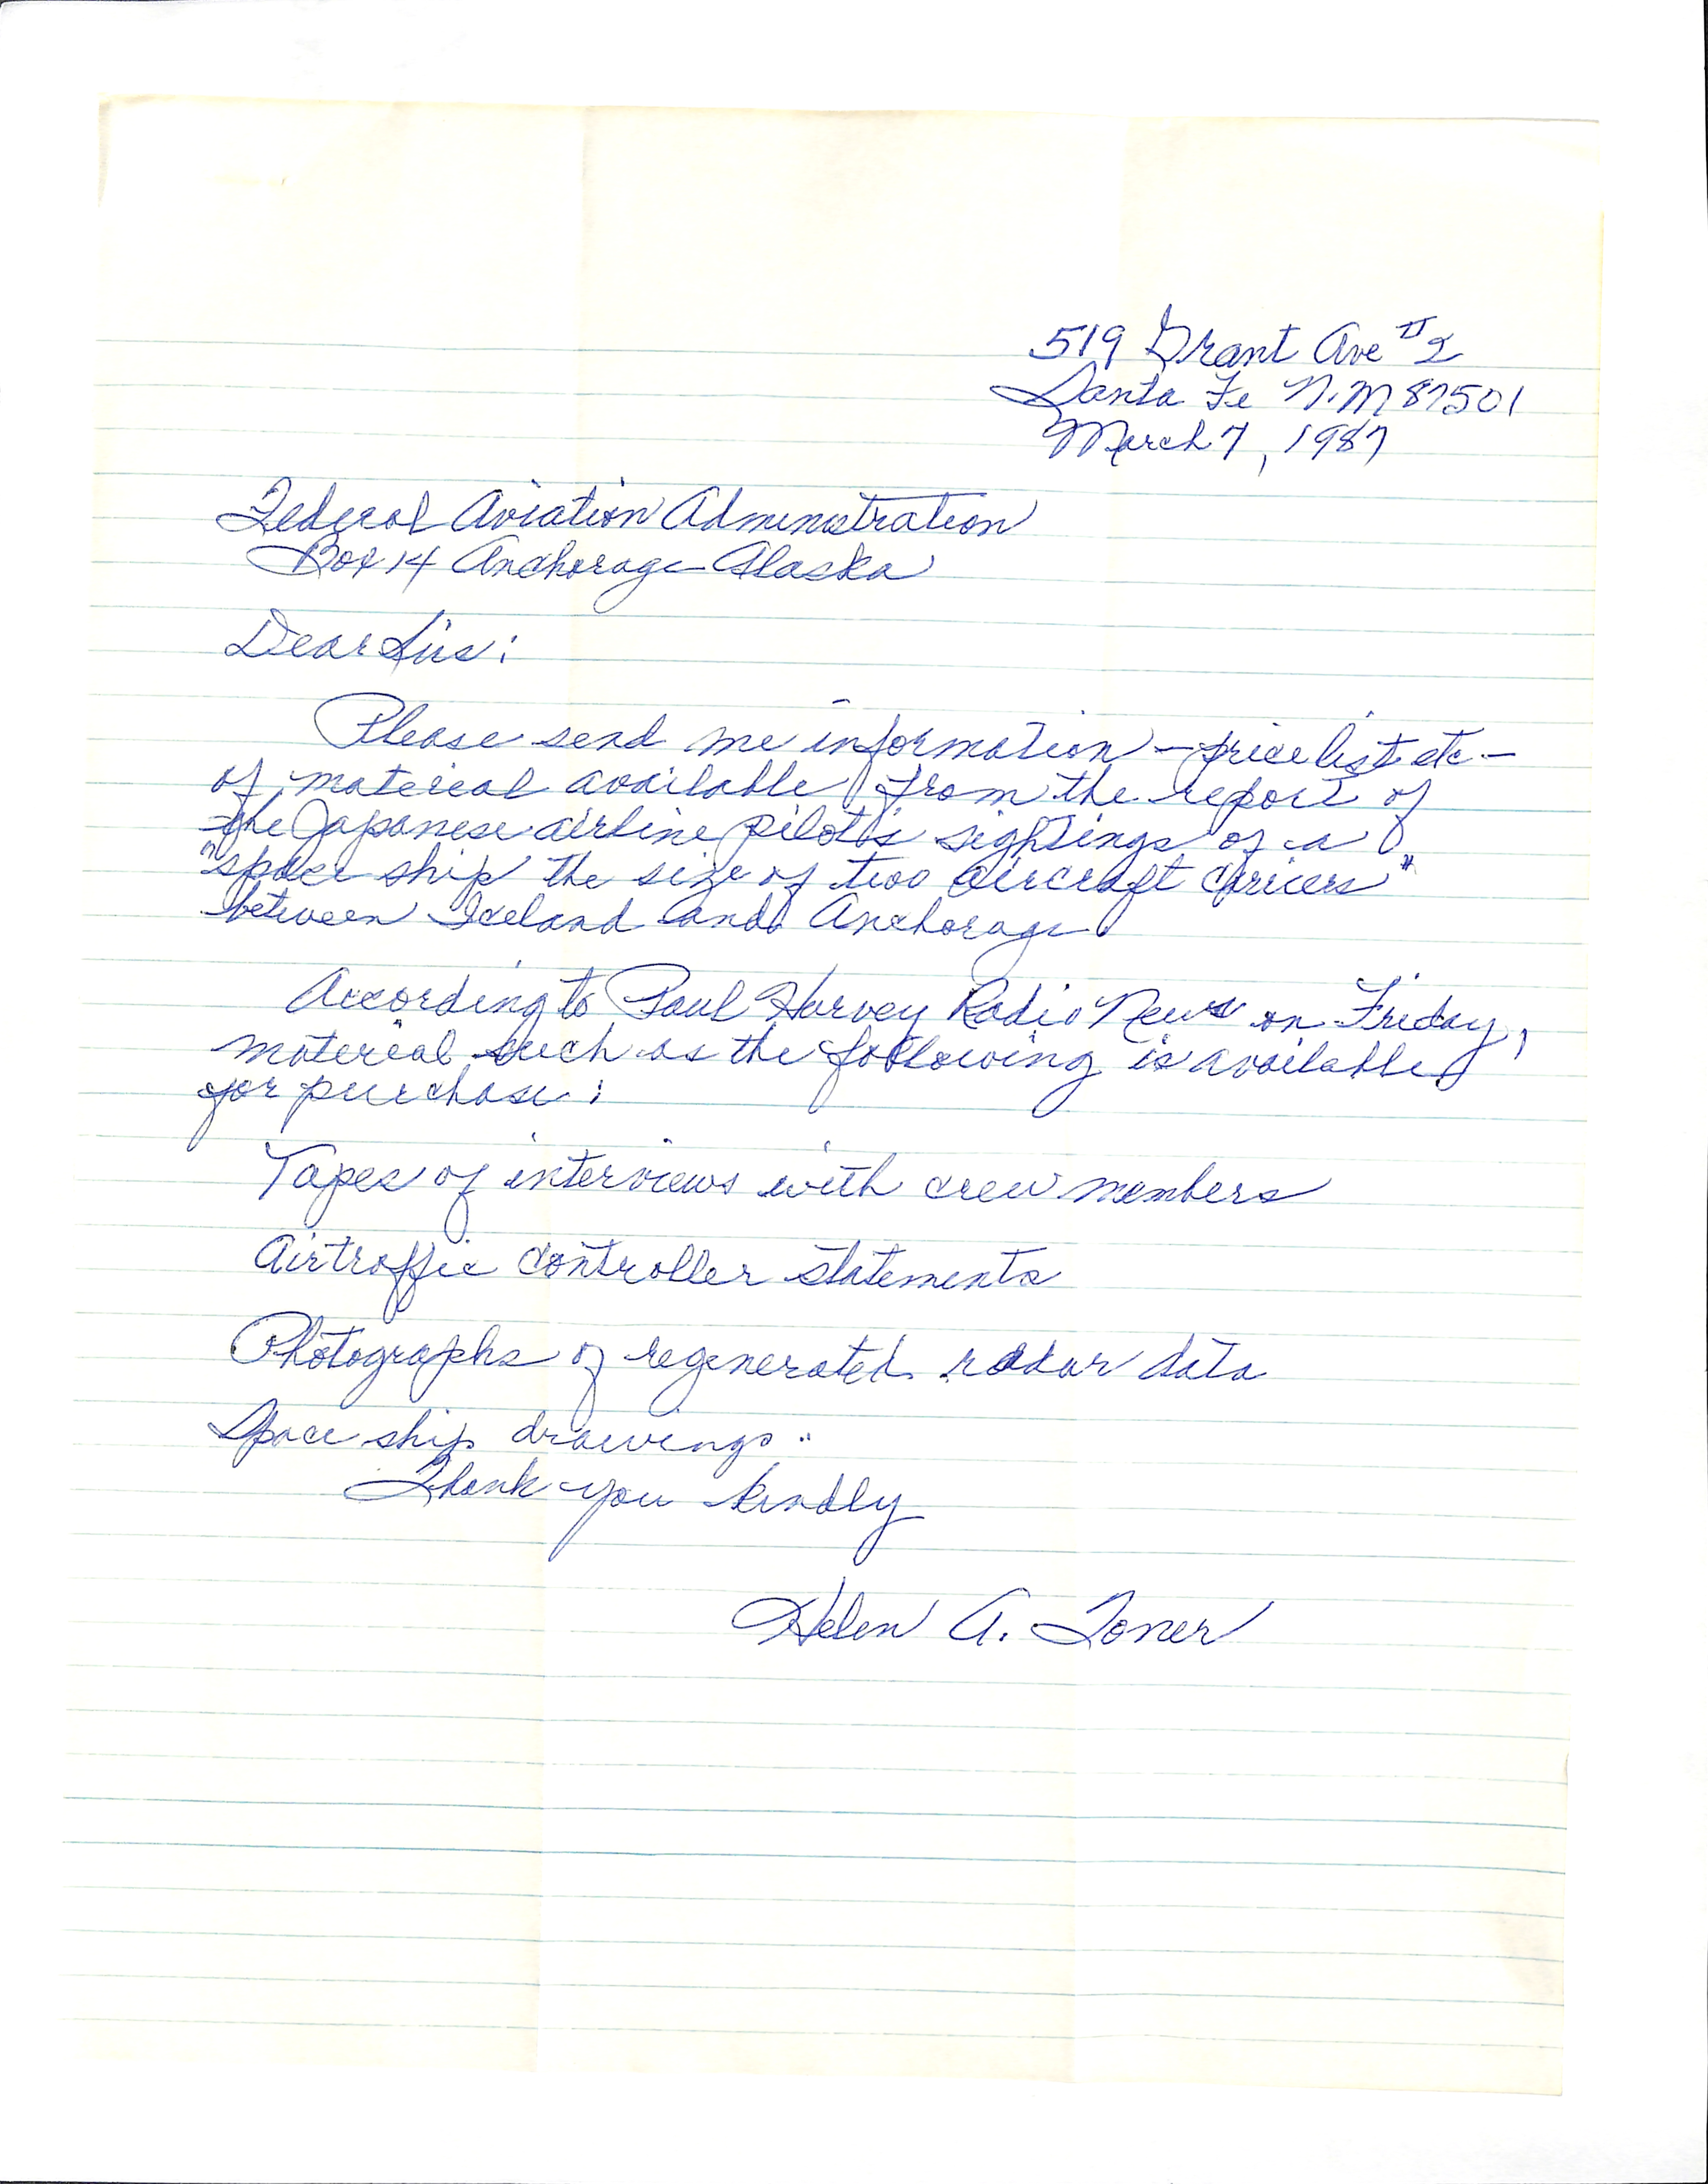 519 Grant Ave #2
Santa Fe N.M 87501
March 7, 1987
Federal Aviation Administration
Box 14 Anchorage Alaska
Dear Sirs:
Please send me information - price list etc -
of material available from the report of
the Japanese airline pilot's sightings of a
"space ship the size of two aircraft carriers"
between Iceland and Anchorage.
According to Paul Harvey Radio News on Friday,
material such as the following is available
for purchase:
Tapes of interviews with crew members
Airtraffic controller statements
Photographs of regenerated radar data
Space ship drawings.
Thank you kindly
Helen A. Toner